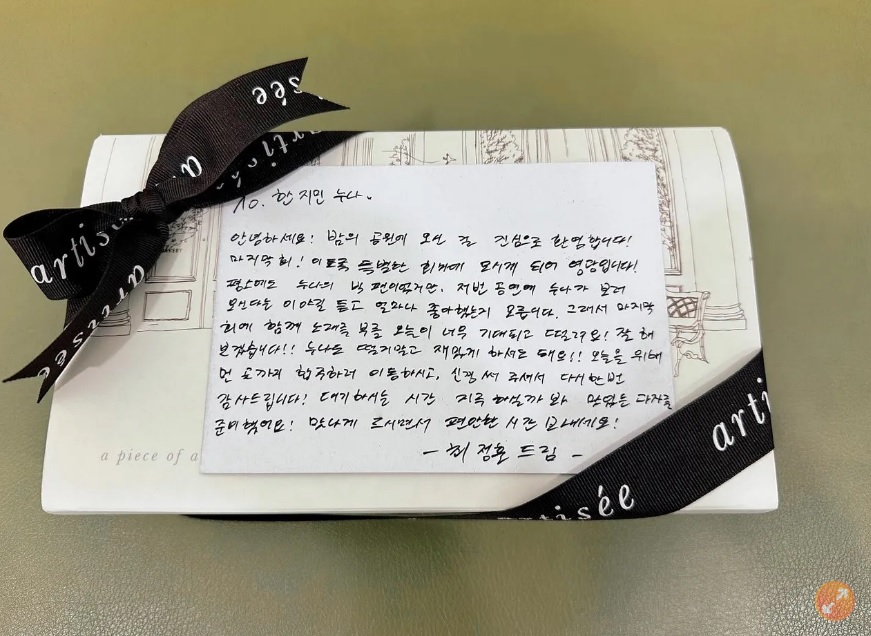 artisée
artisée
artisée
To. 한지민 누나.
안녕하세요! 밤의 공원에 오신 걸 진심으로 환영합니다!
마지막 회! 이토록 특별한 회차에 모시게 되어 영광입니다!
평소에도 누나의 빅 팬이었지만, 저번 공연에 누나가 보러
오신다는 이야길 듣고 얼마나 좋아했는지 모릅니다. 그래서 마지막
회에 함께 노래를 부를 오늘이 너무 기대되고 떨려요! 잘 해
보겠습니다!! 누나도 떨지말고 재밌게 하셔도 돼요!! 오늘을 위해
먼 곳까지 합주하러 이동하시고, 신경 써 주셔서 다시한번
감사드립니다! 대기하시는 시간 지루하실까 봐 맛있는 과자를
준비했어요! 맛나게 드시면서 편안한 시간 보내세요!
- 최정훈 드림 -
a piece of a
artisée
arti